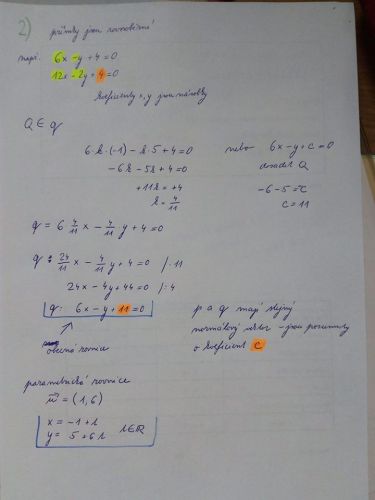 2) přímky jsou rovnoběžné
např. 6x - y + 4 = 0
12x - 2y + 4 = 0
koeficienty x, y jsou násobky
Q ∈ q
6·k·(-1) - k·5 + 4 = 0
-6k - 5k + 4 = 0
+11k = +4
k = 4/11
nebo 6x - y + c = 0
dosadit Q
-6 - 5 = -c
c = 11
q = 6 4/11 x - 4/11 y + 4 = 0
q: 24/11 x - 4/11 y + 4 = 0 /·11
24x - 4y + 44 = 0 /:4
q: 6x - y + 11 = 0
obecná rovnice
p a q mají stejný
normálový vektor - jsou posunuty
o koeficient c
parametrická rovnice
u⃗ = (1, 6)
x = -1 + k
y = 5 + 6k k∈R